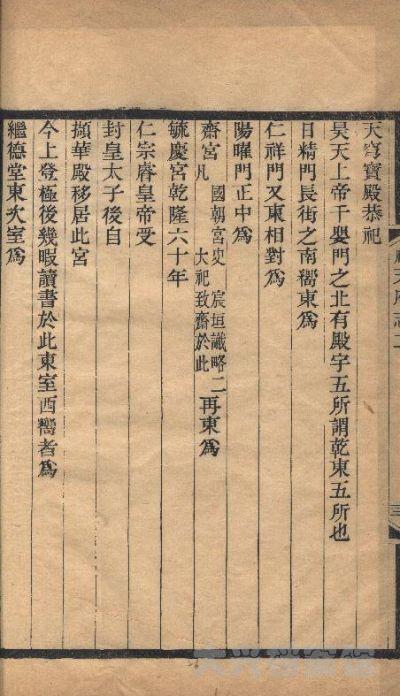 天穹寶殿恭祀
昊天上帝千嬰門之北有殿宇五所謂乾東五所也
日精門長街之南嚮東爲
仁祥門又東相對爲
陽曜門正中爲
齋宮凡 大祀致齋於此 國朝宮史 宸垣識略二 再東爲
毓慶宮乾隆六十年
仁宗睿皇帝受
封皇太子後自
擷華殿移居此宮
今上登極後幾暇讀書於此東室西嚮者爲
繼德堂東次室爲